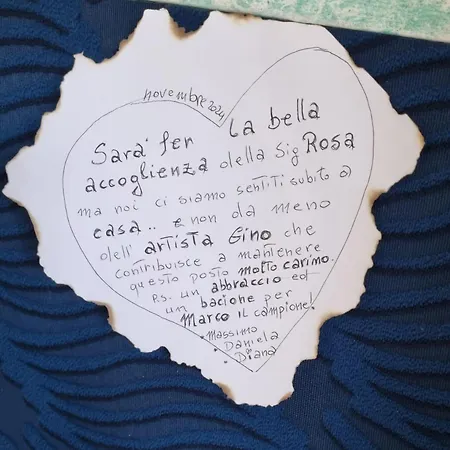 novembre 2024
Sara' per la bella
accoglienza della Sig Rosa
ma noi ci siamo sentiti subito a
casa.. e non da meno
dell' artista Gino che
contribuisce a mantenere
questo posto molto carimo.
P.S. un abbraccio ed
un bacione per
Marco il campione!
Massimo
Daniela
Diana